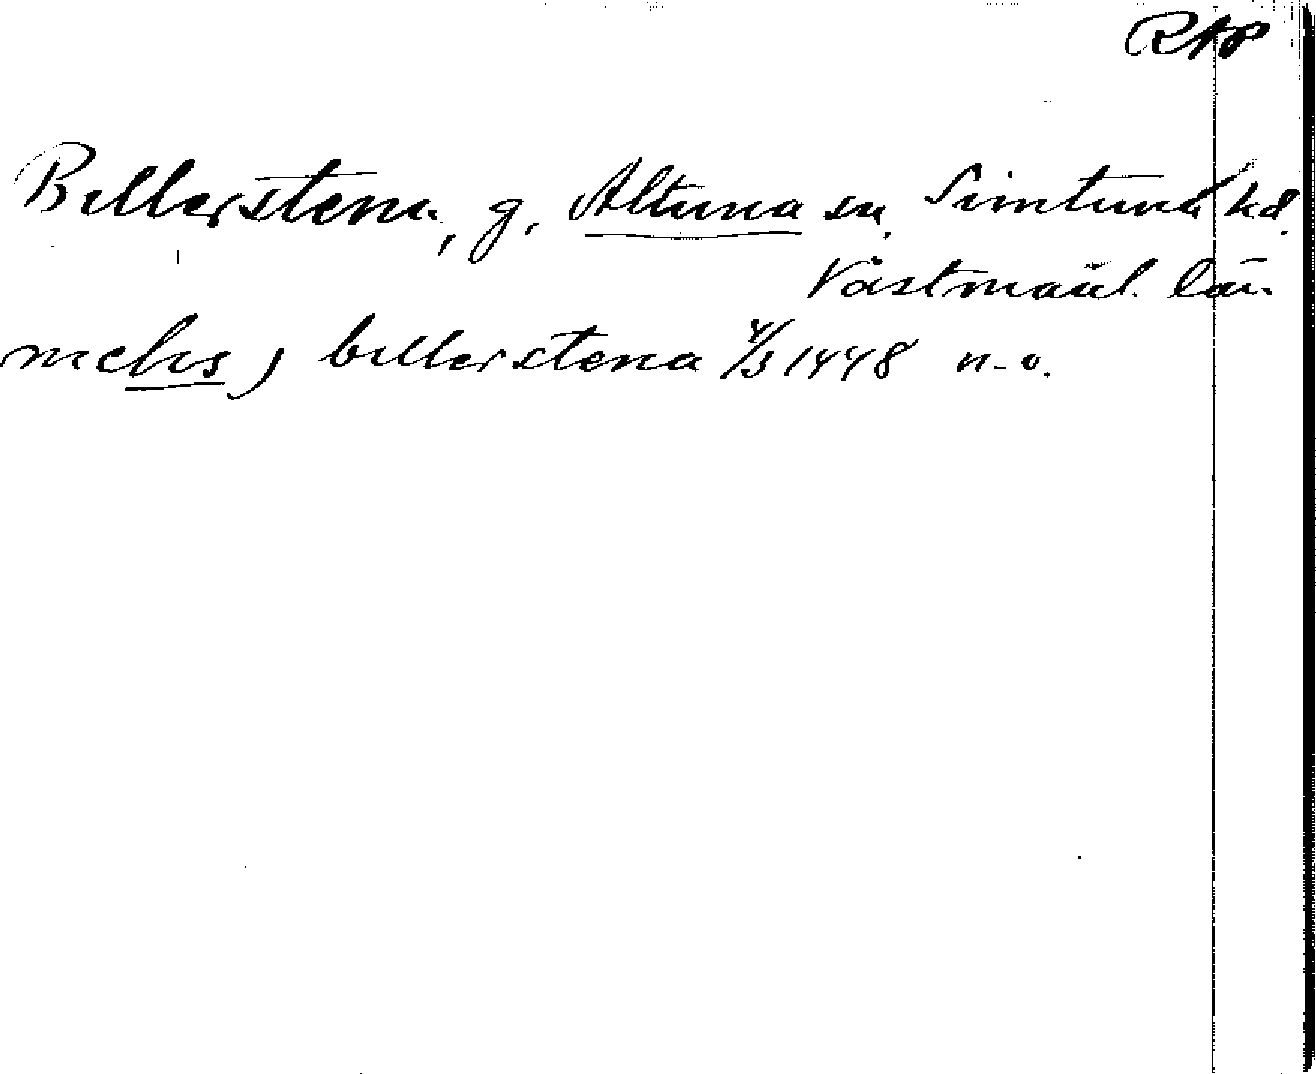 RAP
Billerstena, g, Altuna sn, Simtuna hd.
Västmanl. län.
mchs j billerstena 4/3 1448 n-o.